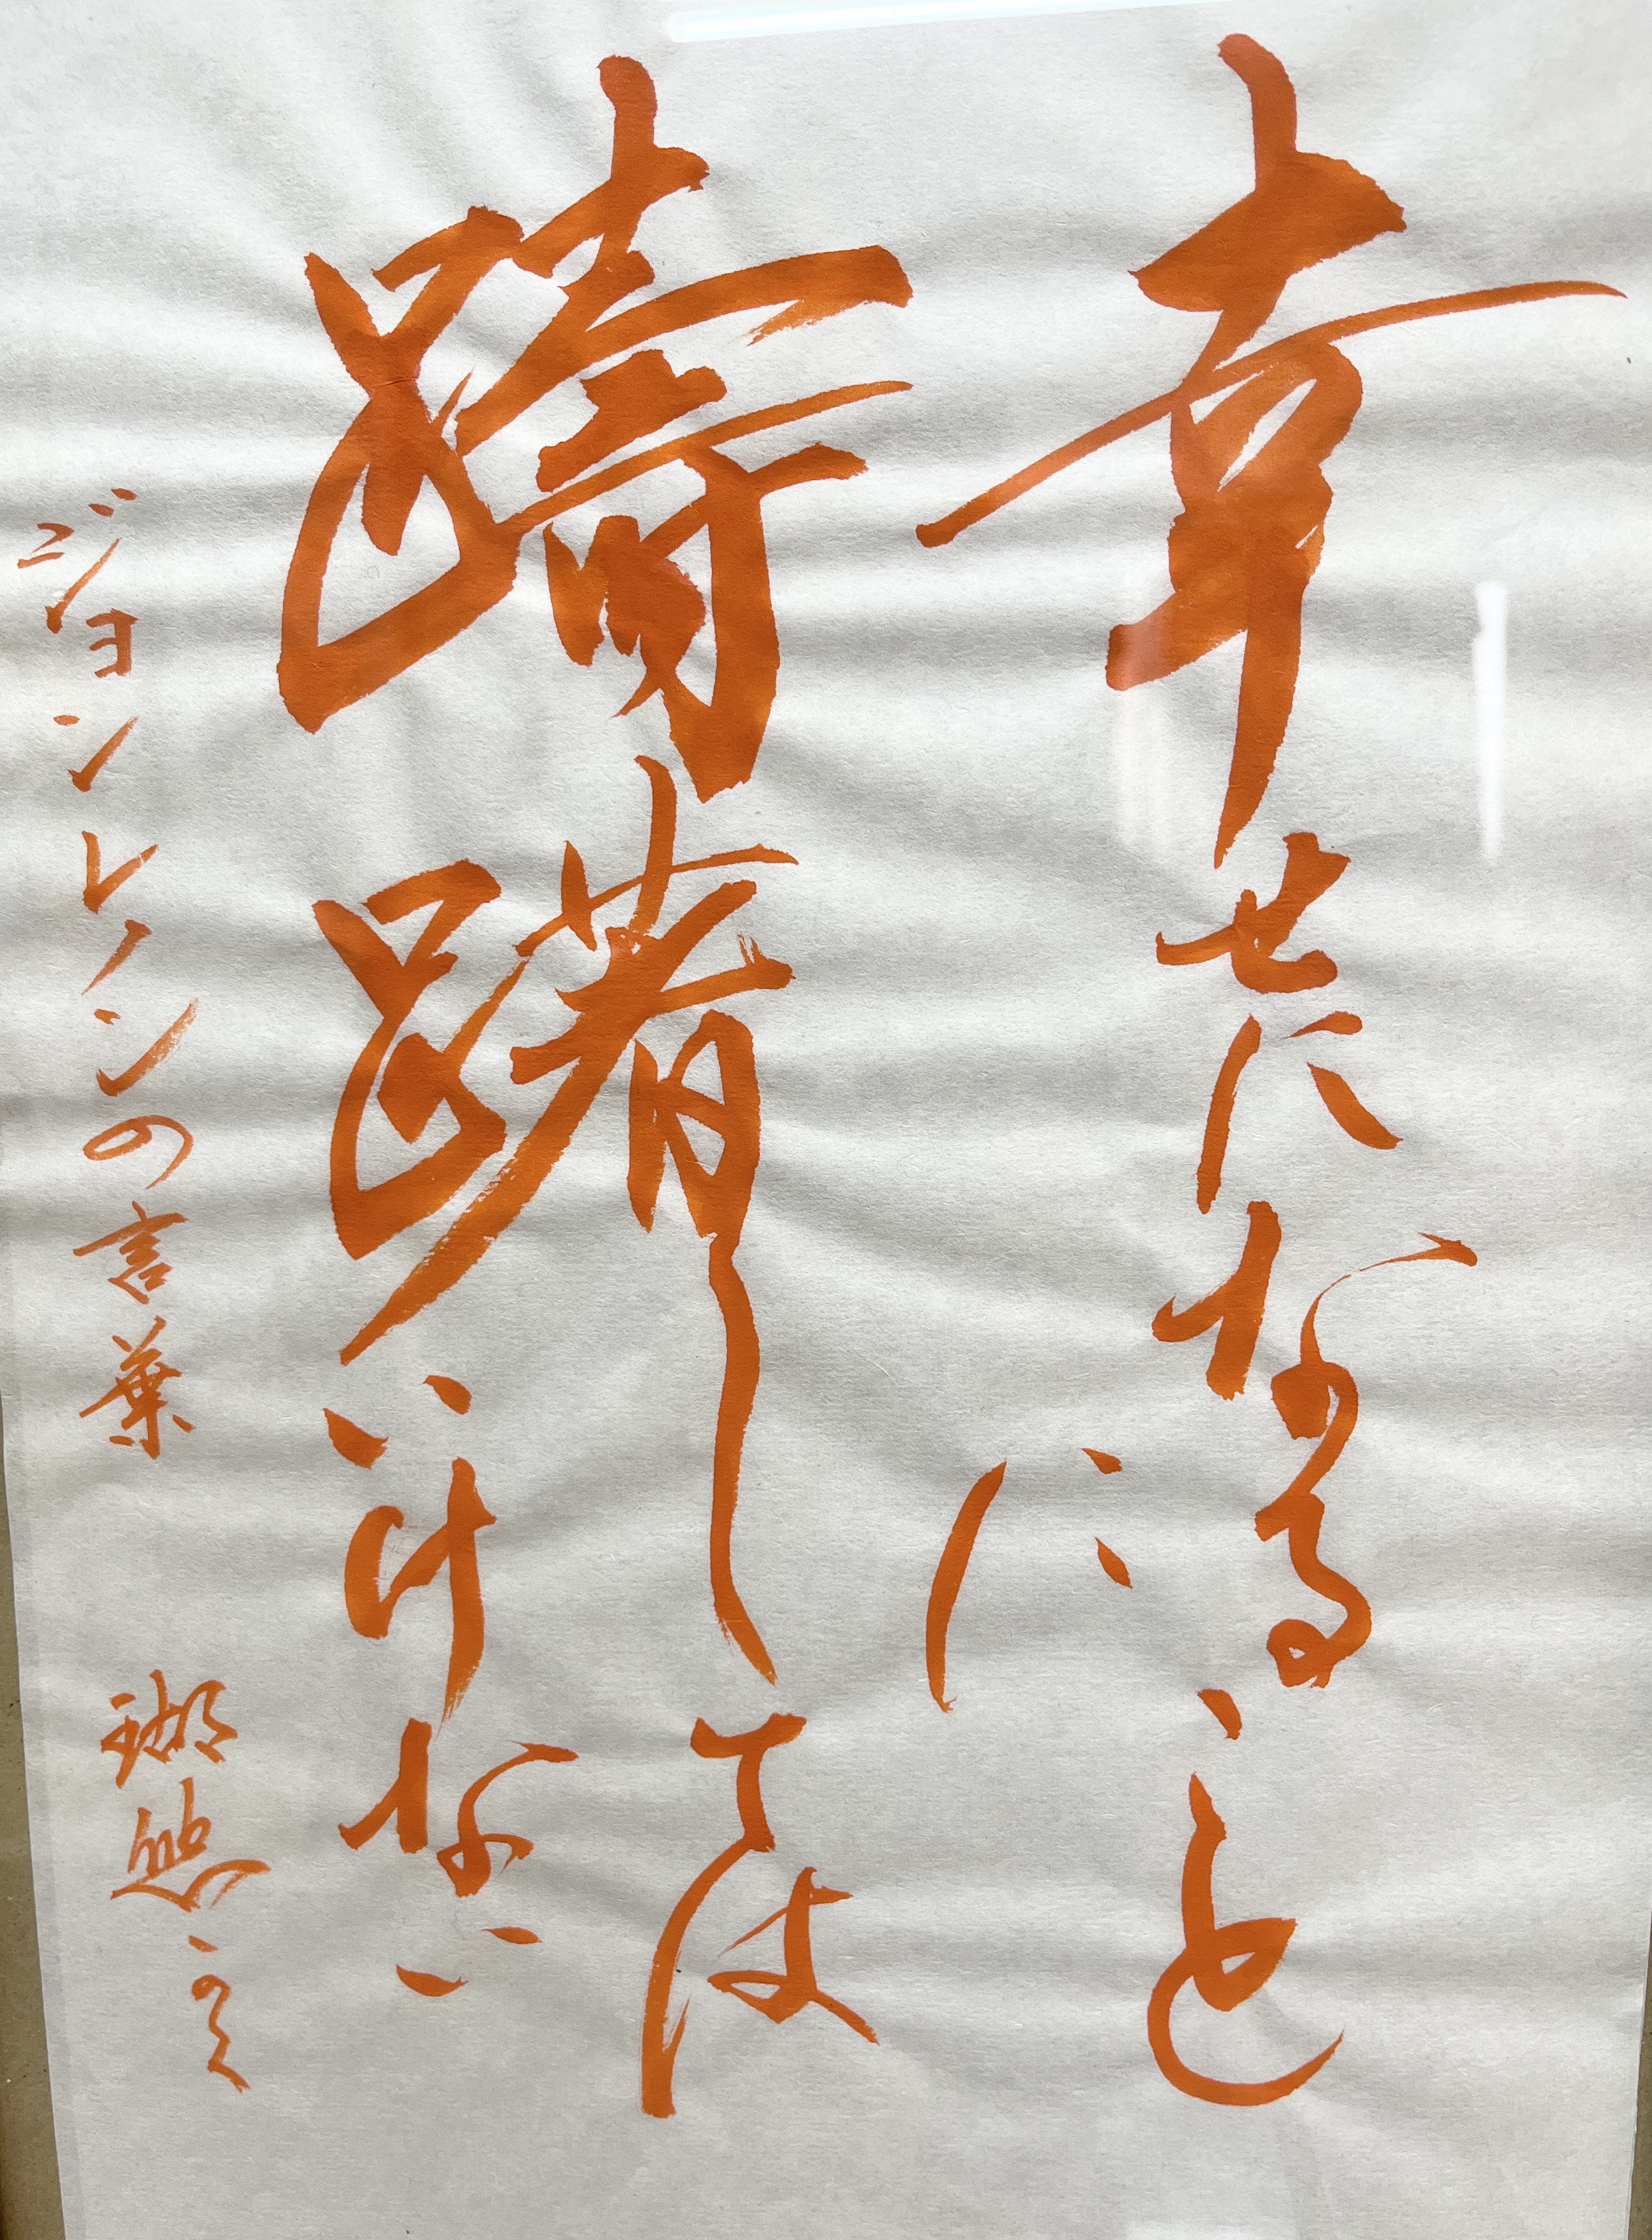 幸せになること
に
躊躇しては
いけない
ジョンレノンの言葉